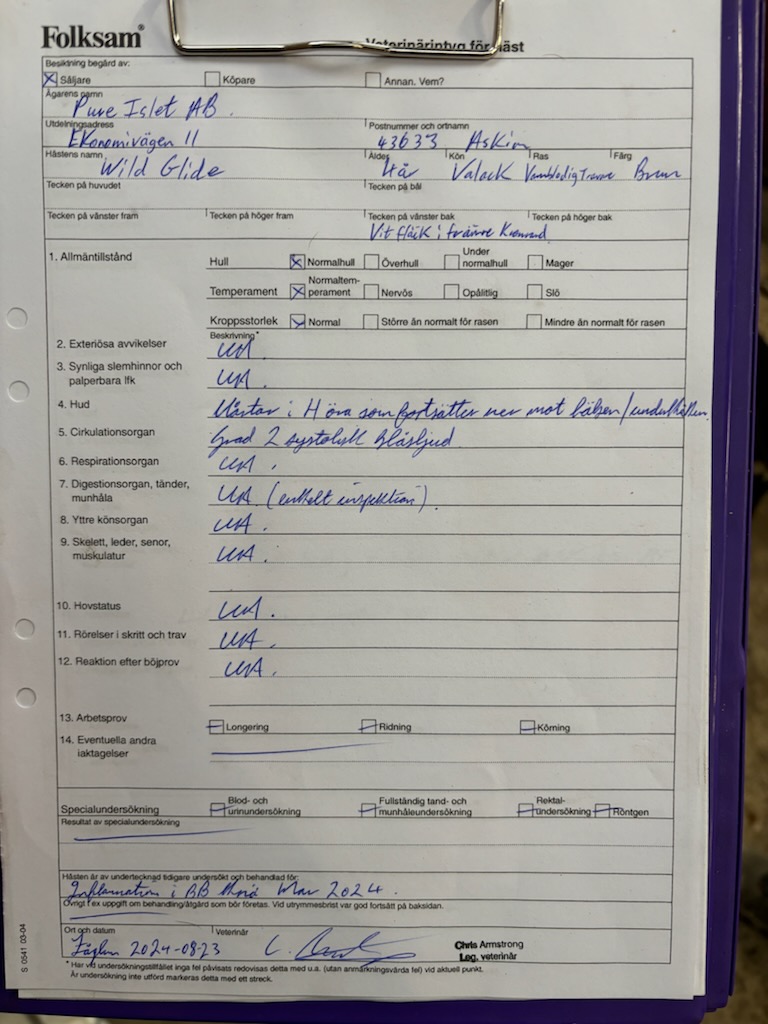 Folksam®
Veterinärintyg för häst
Besiktning begärd av:
Säljare Köpare Annan. Vem?
Ägarens namn
Pure Islet AB
Utdelningsadress Postnummer och ortnamn
Ekonomivägen 11 43633 Askim
Hästens namn Ålder Kön Ras Färg
Wild Glide 4 år Valack Varmblodig Travare Brun
Tecken på huvudet Tecken på bål
Tecken på vänster fram Tecken på höger fram Tecken på vänster bak Tecken på höger bak
Vit fläck i främre Kronrand
1. Allmäntillstånd Hull Normalhull Överhull Under normalhull Mager
Temperament Normaltemperament Nervös Opålitlig Slö
Kroppsstorlek Normal Större än normalt för rasen Mindre än normalt för rasen
Beskrivning*
2. Exteriösa avvikelser UA.
3. Synliga slemhinnor och
palperbara lfk UA.
4. Hud Vårtor i H öra som fortsätter ner mot halsen/
5. Cirkulationsorgan Grad 2 systolisk blåsljud
6. Respirationsorgan UA.
7. Digestionsorgan, tänder,
munhåla UA. (enkelt inspektion).
8. Yttre könsorgan UA.
9. Skelett, leder, senor,
muskulatur UA.
10. Hovstatus UA.
11. Rörelser i skritt och trav UA.
12. Reaktion efter böjprov UA.
13. Arbetsprov Longering Ridning Körning
14. Eventuella andra
iaktagelser
Specialundersökning Blod- och urinundersökning Fullständig tand- och munhåleundersökning Rektalundersökning Röntgen
Resultat av specialundersökning
Hästen är av undertecknad tidigare undersökt och behandlad för:
Inflammation i BB Mar 2024.
Övrigt t ex uppgift om behandling/åtgärd som bör företas. Vid utrymmesbrist var god fortsätt på baksidan.
Ort och datum Veterinär
2024-08-23
Chris Armstrong
Leg. veterinär
* Har vid undersökningstillfället inga fel påvisats redovisas detta med u.a. (utan anmärkningsvärda fel) vid aktuell punkt.
Är undersökning inte utförd markeras detta med ett streck.
S 0541 03-04